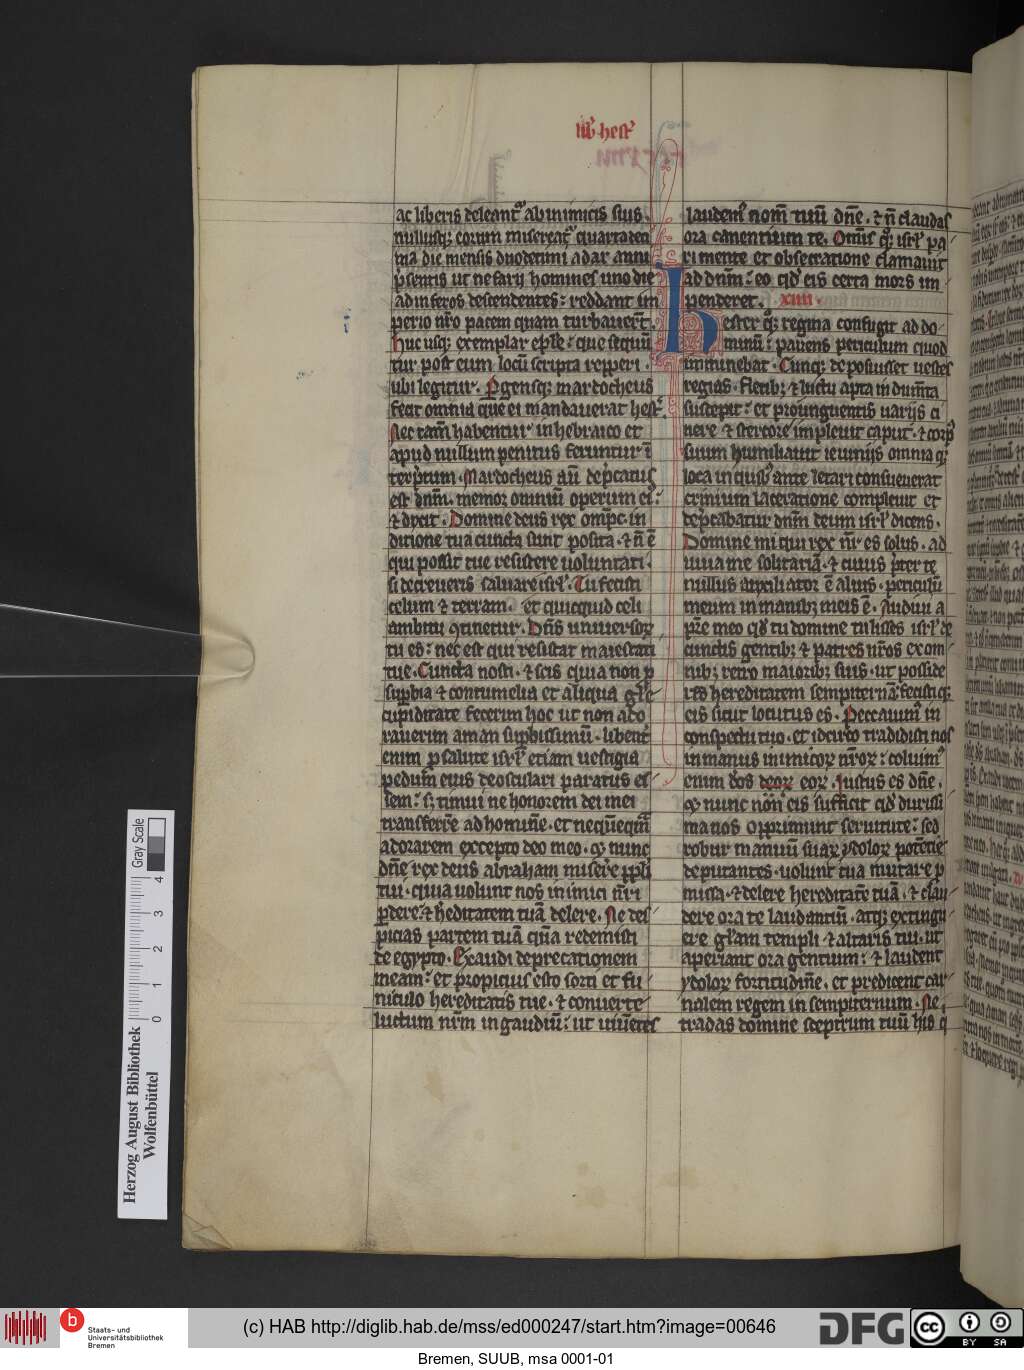 lib̾ hest̾
ac liberis deleant᷑ ab inimicis suis.
nullusq; eorum misereat᷑ quartadeci
ma die mensis duodecimi adar anni
p̄sentis ut nefarij homines uno die
ad inferos descendentes: reddant im
perio nr̄o pacem quam turbauert̄.
Huc usq; exemplar ep̄le: que sequūt
tur post eum locū scripta repperi.
ubi legitur. Pergensq; mardocheus
fecit omnia que ei mandauerat hest̾.
Nec tam̄ habentur in hebraico et
apud nullum penitus feruntur ī
terp̄tum. Mardocheus aū dep̄catus
est dn̄m. memor omniū operum ei᷒
⁊ dixit. Domine deus rex omp̄c. in
ditione tua cuncta sunt posita. ⁊ n̄ ē
qui possit tue resistere uoluntati.
si decreueris saluare isrl̄. Tu fecisti
celum ⁊ terram. et quicquid celi
ambitu ꝯtinetur. Dn̄s uniuersoꝝ
tu es: nec est qui resistat maiestati
tue. Cuncta nosti. ⁊ scis quia non p
sup̄bia ⁊ contumelia et aliqua gl̄e
cupiditate fecerim hoc ut non ado
rauerim aman sup̄bissimū. libent̾
enim ꝓ salute isrl̄ etiam uestigia
pedum̄ eius deosculari paratus es
sem: s; timui ne honorem dei mei
transferrē ad hominē. et neq̄uēq̄m̄
adorarem excepto deo meo. ⁊ nunc
dn̄e rex deus abraham miserēre ppl̄i
tui. quia uolunt nos inimici nr̄i
ꝑdere. ⁊ h̾editatem tuā delere. Ne des
picias partem tuā qūa redemisti
de egypto. Exaudi deprecationem
meam: et propicius esto sorti et fu
niculo hereditatis tue. ⁊ conuerte
luctum nr̄m in gaudiū: ut uiuētes
laudem᷒ nom̄ tuū dn̄e. ⁊ n̄ claudas
ora canentium te. Om̄is q; isrl̄ pa
ri mente et obsecratione clamauit
ad dn̄m: eo qd̾ eis certa mors im
penderet. xiiii.
Hester q; regina confugit ad do
minū: pauens periculum quod
imminebat. Cumq; deposuisset uestes
regias. fletib; ⁊ luctu apta indum̄ta
suscepit: et pro unguentis uarijs ci
nere ⁊ stercore impleuit caput. ⁊ corp᷒
suum humiliauit ieiunijs omnia q;
loca in quib᷒ ante letari consueuerat
crinium laceratione compleuit et
dep̄cabatur dn̄m deum isrl̄ dicens.
Domine mi qui rex nr̄ es solus. ad
iuua me solitariā. ⁊ cuius p̄ter te
nullus auxiliator ē alius. periculū
meum in manib; meis ē. Audiui a
p̄re meo qd̾ tu domine tulisses isrl̄ de
cunctis gentib; ⁊ patres nr̄os ex om
nib; retro maiorib; suis. ut posside
res hereditatem sempiternā. fecistiq;
eis sicut locutus es. Peccauim᷒ in
conspectu tuo. et idcirco tradidisti nos
in manus inimicoꝝ nr̄oꝝ: coluim᷒
enim d̄os deoꝝ eoꝝ. Justus es dn̄e.
⁊ nunc nōn eis sufficit qd̾ durissi
ma nos opprimunt seruitute: sed
robur manuū suaꝝ ydoloꝝ potētie
deputantes. uolunt tua mutare p
missa. ⁊ delere hereditatē tuā. ⁊ clau
dere ora te laudantiū. atq; extingu
ere gl̄am templi ⁊ altaris tui. ut
aperiant ora gentium: ⁊ laudent
ydoloꝝ fortitudinē. et predicent car
nalem regem in sempiternum. Ne
tradas domine sceptrum tuū his q̄
Gray Scale
0 1 2 3 4
Herzog August Bibliothek
Wolfenbüttel
b
Staats- und
Universitätsbibliothek
Bremen
(c) HAB http://diglib.hab.de/mss/ed000247/start.htm?image=00646
DFG
cc
BY SA
Bremen, SUUB, msa 0001-01